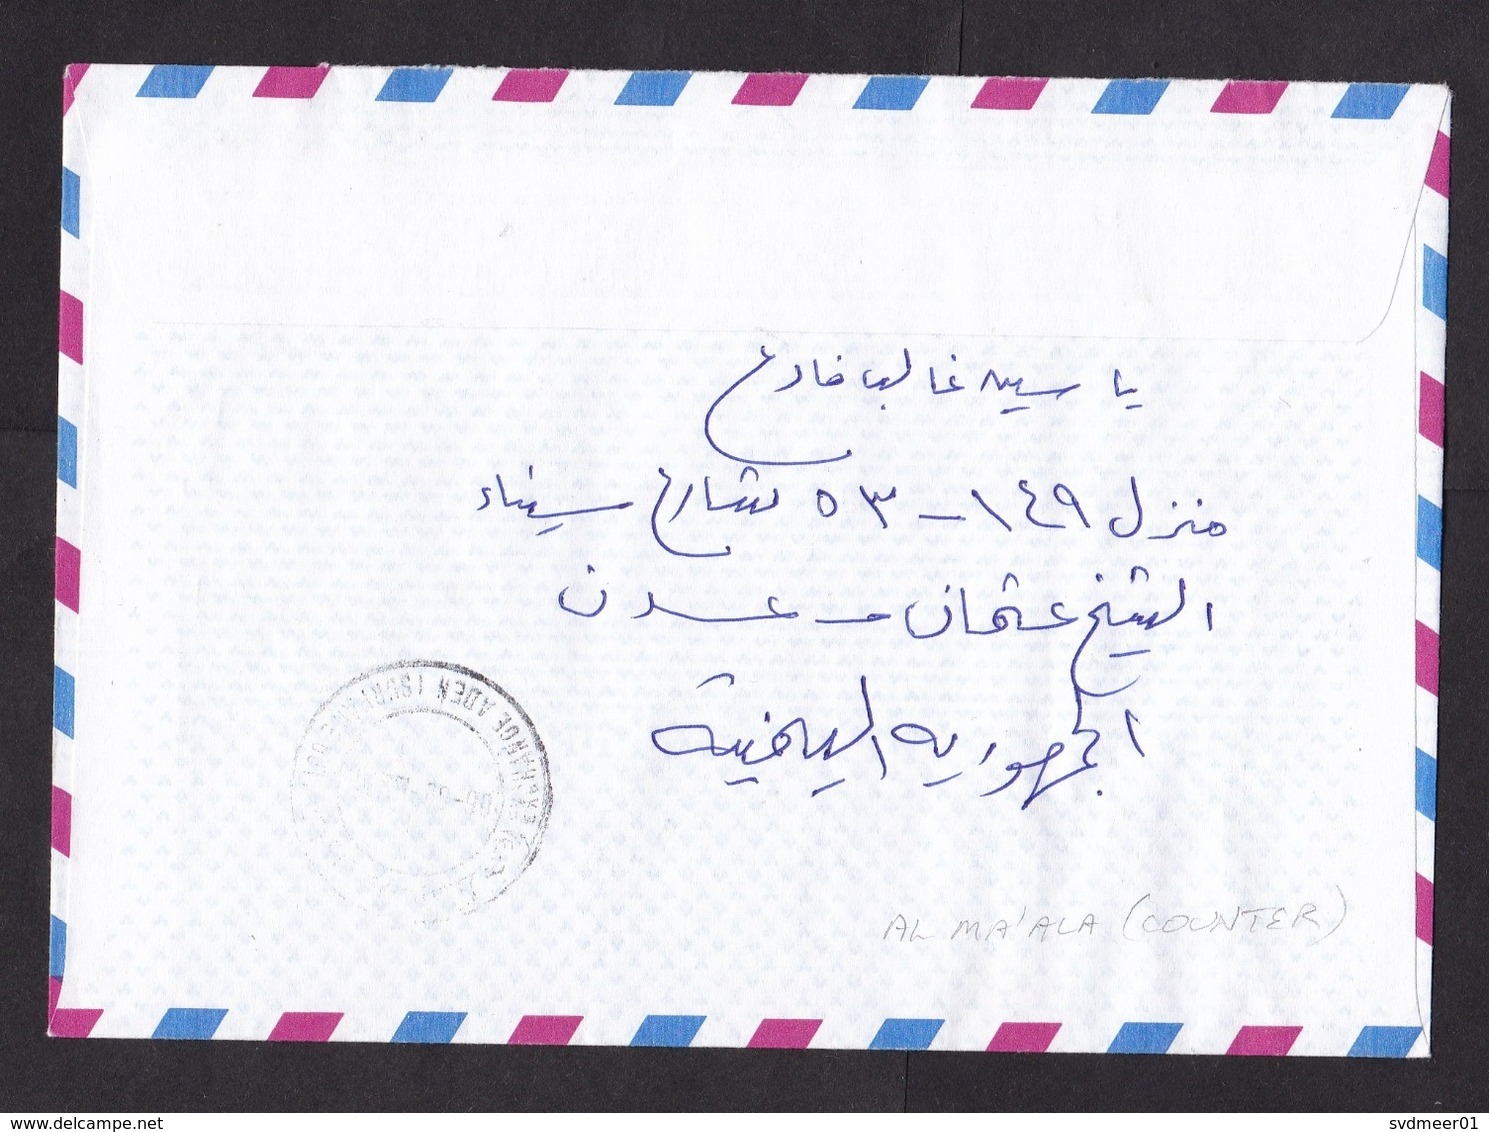 ياسين غالب فارع
منزل ١٤٩ - ٥٣ شارع سيناء
الشيخ عثمان - عدن
الجمهورية اليمنية
EXCHANGE ADEN
AL MA'ALA (COUNTER)
delcampe.net
svdmeer01